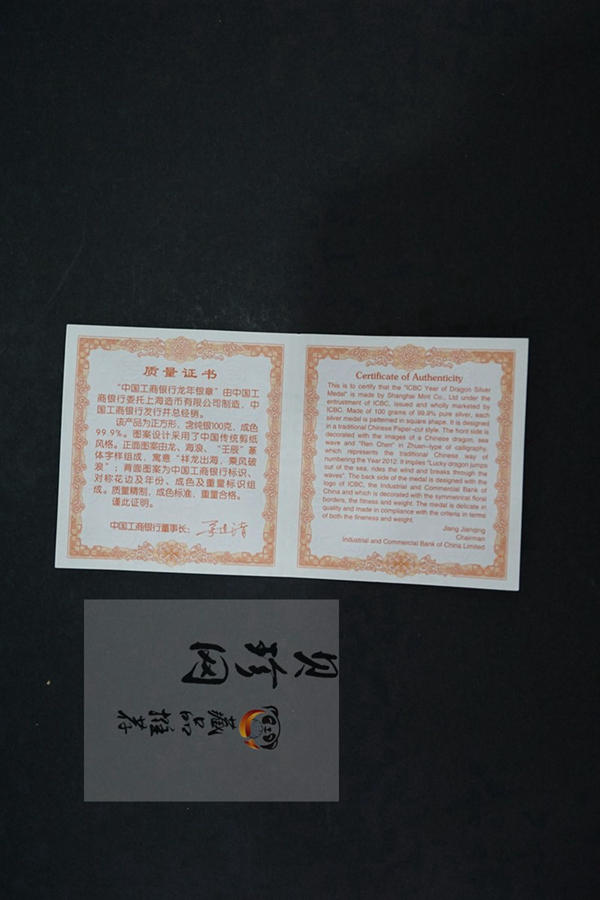 质量证书
“中国工商银行龙年银章”由中国工
商银行委托上海造币有限公司制造，中
国工商银行发行并总经销。
该产品为正方形，含纯银100克，成色
99.9%。图案设计采用了中国传统剪纸
风格。正面图案由龙、海浪、“壬辰”篆
体字样组成，寓意“祥龙出海，乘风破
浪”；背面图案为中国工商银行标识、
对称花边及年份、成色及重量标识组
成。质量精制，成色标准，重量合格。
谨此证明。
中国工商银行董事长：
姜建清
Certificate of Authenticity
This is to certify that the "ICBC Year of Dragon Silver
Medal" is made by Shanghai Mint Co., Ltd under the
entrustment of ICBC, issued and wholly marketed by
ICBC. Made of 100 grams of 99.9% pure silver, each
silver medal is patterned in square shape. It is designed
in a traditional Chinese Paper-cut style. The front side is
decorated with the images of a Chinese dragon, sea
wave and "Ren Chen" in Zhuan-type of calligraphy,
which represents the traditional Chinese way of
numbering the Year 2012. It implies "Lucky dragon jumps
out of the sea, rides the wind and breaks through the
waves". The back side of the medal is designed with the
logo of ICBC, the Industrial and Commercial Bank of
China and which is decorated with the symmetrical floral
borders, the fineness and weight. The medal is delicate in
quality and made in compliance with the criteria in terms
of both the fineness and weight.
Jiang Jianqing
Chairman
Industrial and Commercial Bank of China Limited
贝珍网
藏品推荐